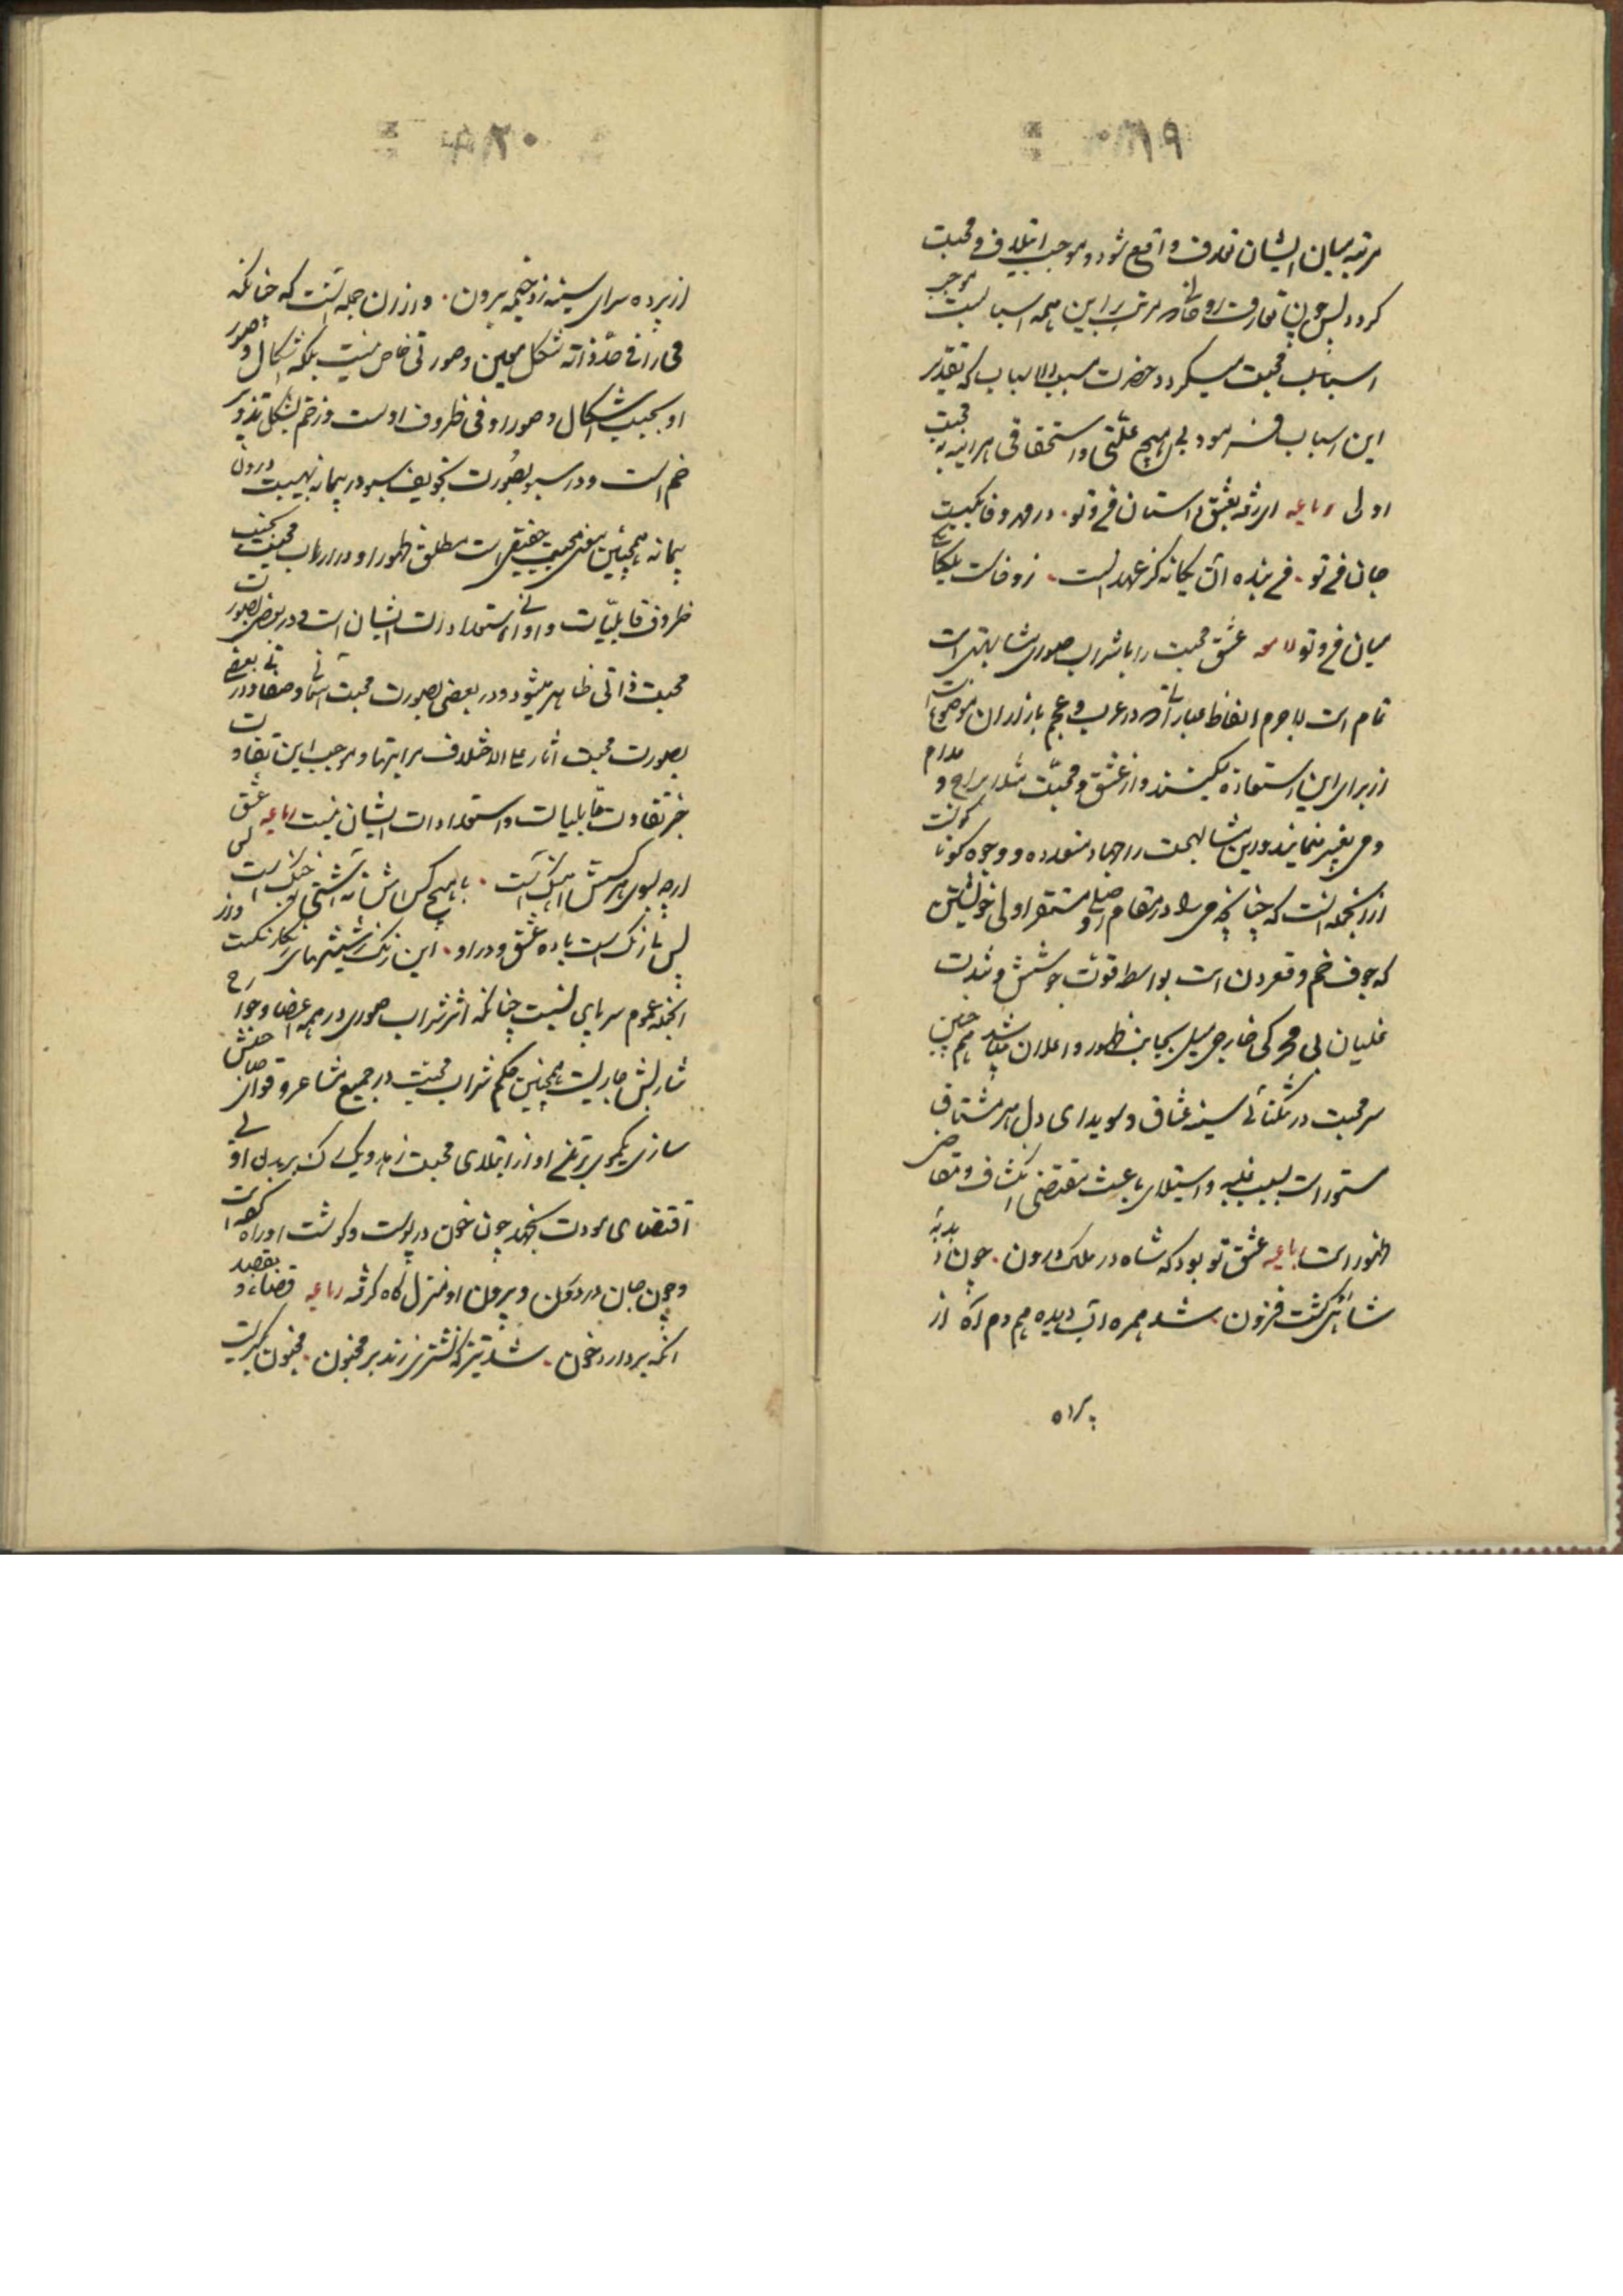 ۱۹
مرتبه میان ایشان تعارف واقع شود و موجب ایتلاف و محبت
کردد پس چون تعارف روحانی مرتب براین همه اسباب است موجب
اسباب محبت میکردد حضرت مسبب الاسباب که تقدیر
این اسباب فرمود بی هیچ علتی و استحقاقی هر آینه به محبت
اولی رباعیه ای رفته بعشق داستان من و تو در مهر و وفا یکیست
جان من و تو من بنده آن یکانه کز عهد الست زو خاست
میان من و تو لامعه عشق و محبت را با شراب صوری مشابهتی
تمام است لاجرم الفاظ و عباراتی که در عرب و عجم بازاء آن موضوع است
از برای این استعاره میکنند و از عشق و محبت مثلا براح و مدام
و می تعبیر مینمایند و این مشابهت را جهات متعدده و وجوه کوناکونست
از آنجمله آنست که چنانچه می را در مقام اصلی و مستقر اولی خویشتن
که جوف خم و قعر دن است بواسطه قوت جوشش و شدت
غلیان بی محرکی خارجی میل بجانب ظهور و اعلان میباشد همچنین
سر محبت در تنکنای سینه عشاق و سویدای دل هر مشتاق
مستور است بسبب غلبه و استیلای باعث مقتضی انکشاف و متقاضی
ظهور است رباعیه عشق تو بود که شاه در ملک درون چون دبدبه
شاهیش کشت فزون شد همره آب دیده همدم آه از
پرده
۲۰
از پرده سرای سینه زد خیمه برون و از آن جمله آنست که چنانکه
می را فی حد ذاته شکل معین و صورتی خاص نیست بلکه اشکال و صور
او بحسب اشکال و صور اوانی و ظروف اوست در خم بشکل تدویر
خم است و در سبو بصورت تجویف سبو و در پیمانه بهیئت درون
پیمانه همچنین معنی محبت حقیقی است مطلق ظهور او در ارباب محبت بحسب
ظروف قابلیات و اوانی استعدادات ایشان است در بعضی بصورت
محبت ذاتی ظاهر میشود و در بعضی بصورت محبت اسمائی و صفاتی و در بعضی
بصورت محبت آثار علی الاختلاف مراتبها و موجب این تفاوت
جز تفاوت قابلیات و استعدادات ایشان نیست رباعیه عشق
ارچه بسوی هر کسش آهنکیست با هیچ کسش نه آشتی نی جنکیست
بس بی رنک است باده عشق و در او این رنک ز شیشهای رنکارنکست و از
آنجمله عموم سریان است چنانکه اثر شراب صوری در همه اعضا و جوارح
شاربش جاریست همچنین حکم شراب محبت در جمیع مشاعر و قوای صاحبش
ساری یکموی بر تن او از ابتلای محبت نرهد و یک رک بر بدن او بی
اقتضای مودت نجهد چون خون در پوست و کوشت او راه کرده است
و چون جان درون و بیرون او منزلکاه کرفته رباعیه فصاد بقصد
آنکه بردارد خون شد تیز که نشتری زند بر مجنون مجنون بکریست